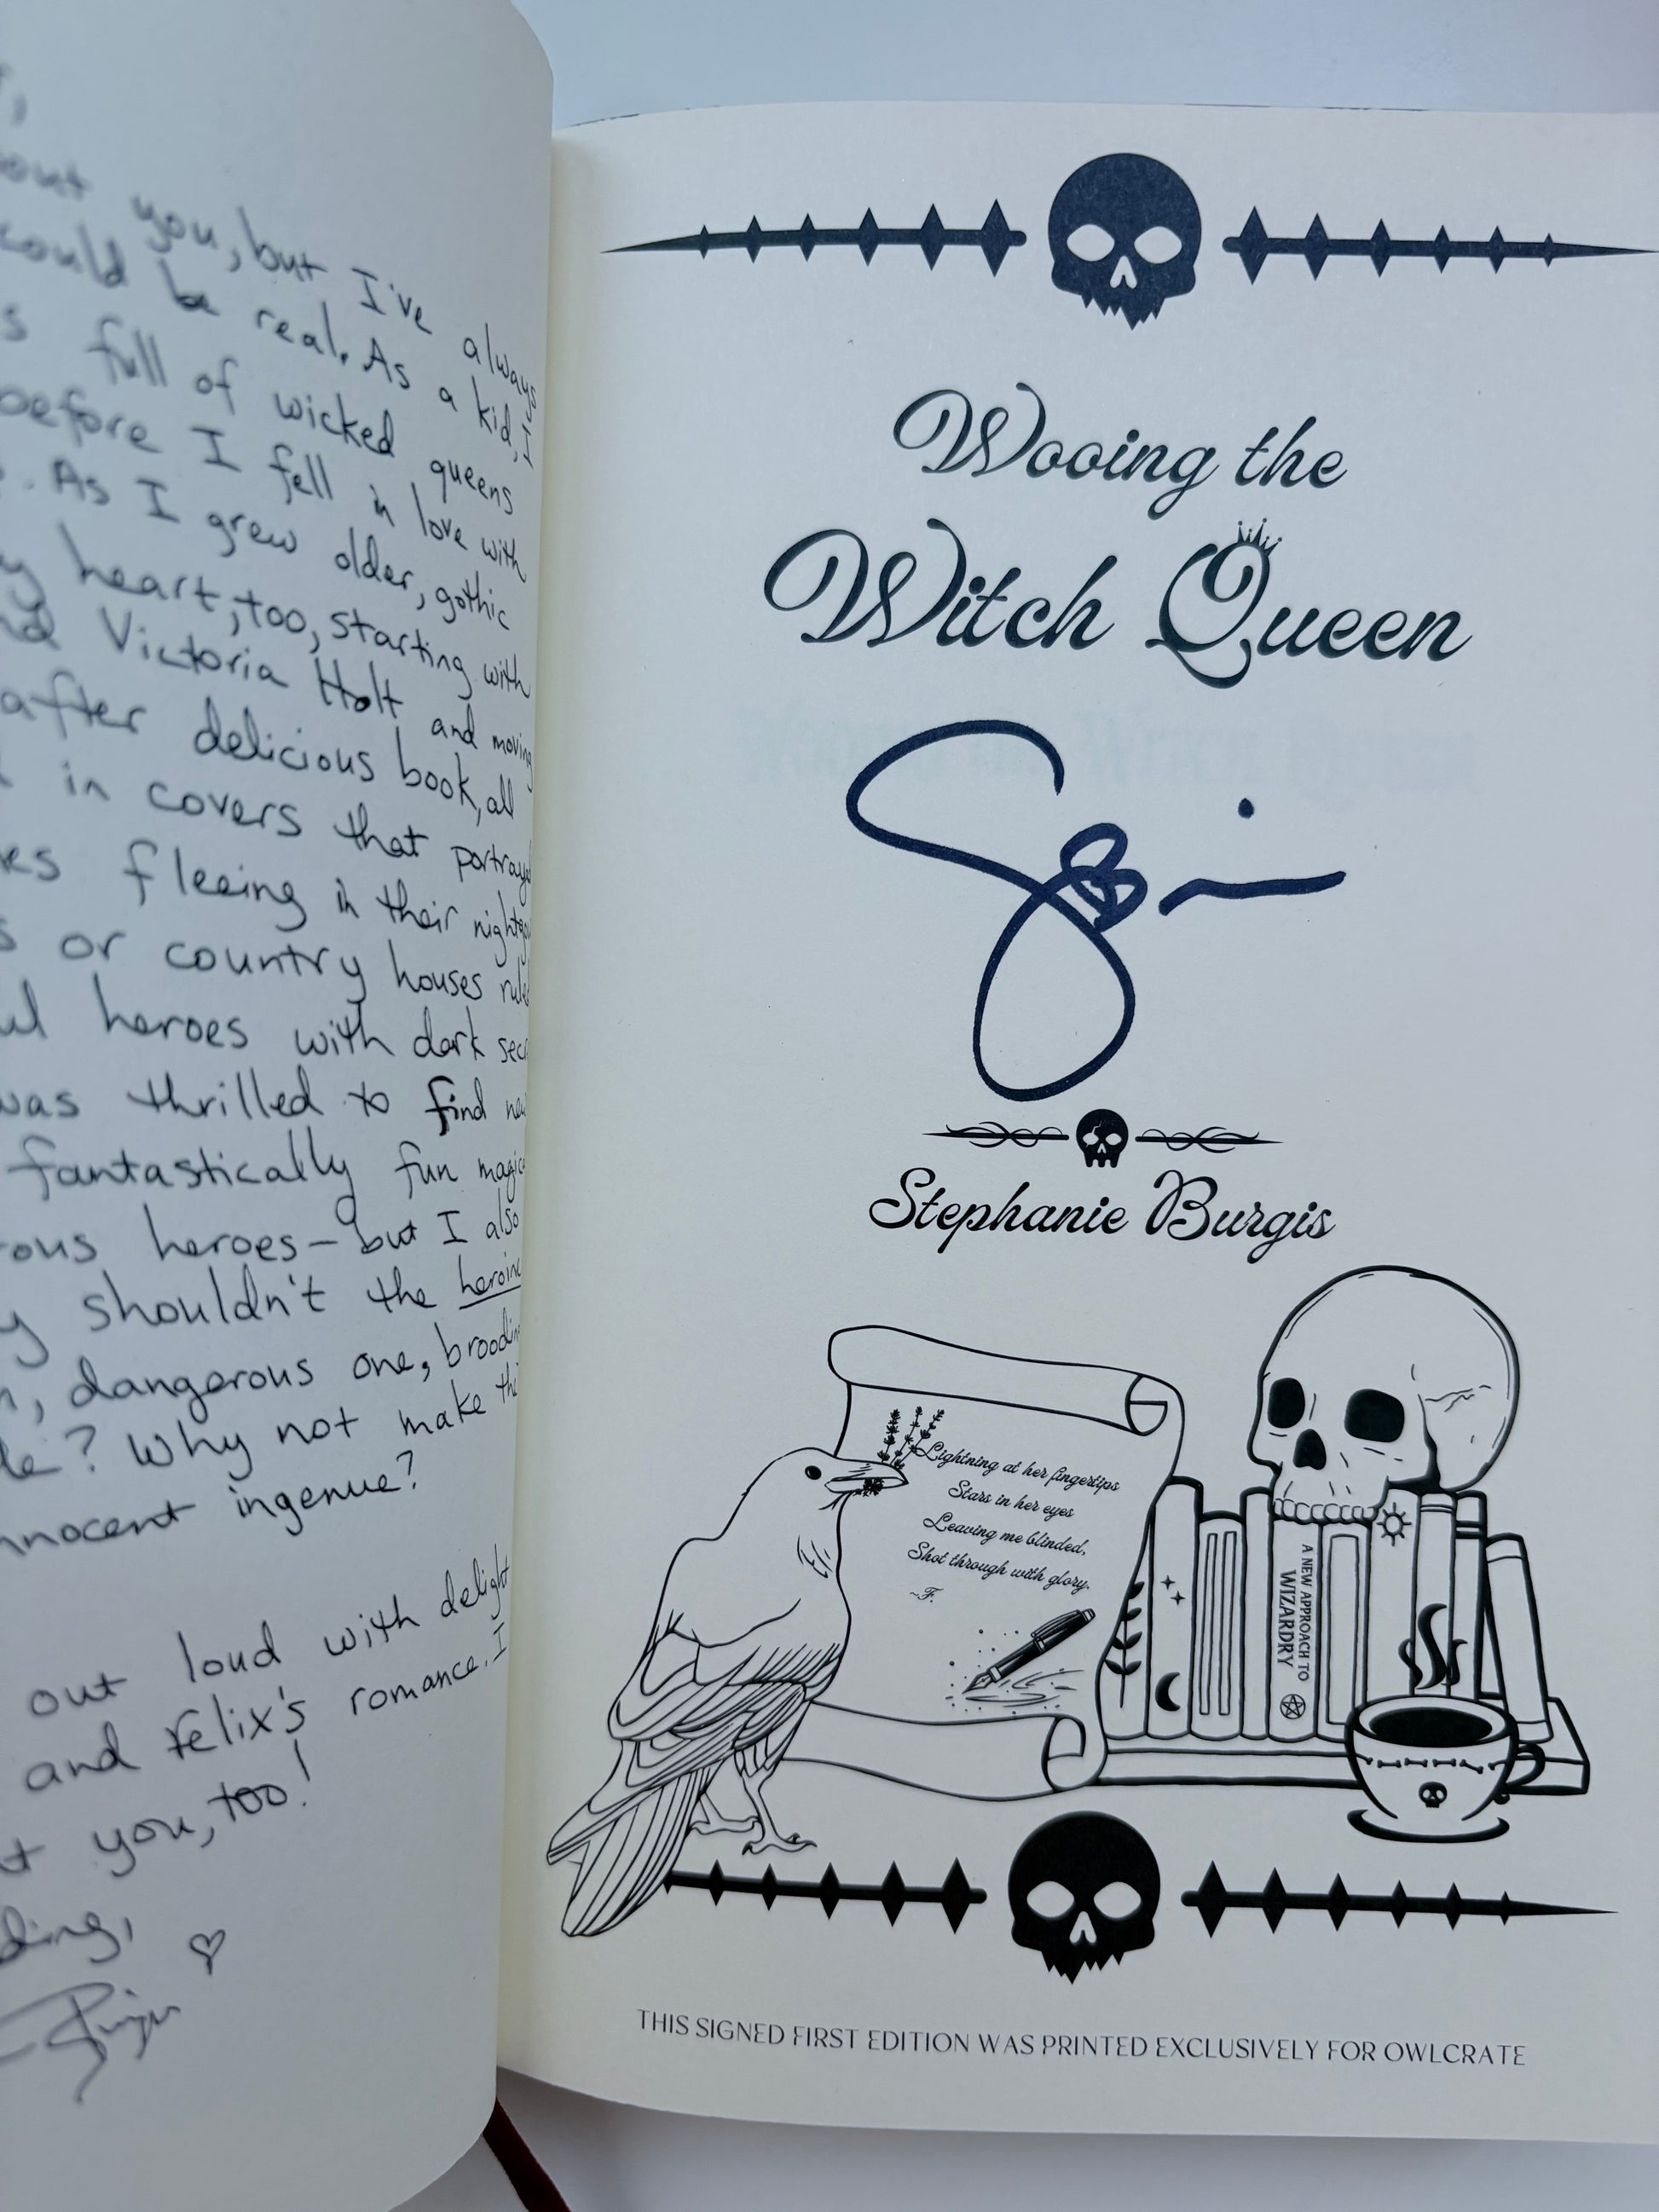 out you, but I've always
could be real. As a kid, I
s full of wicked queens
before I fell in love with
. As I grew older, gothic
y heart, too, starting with
nd Victoria Holt and moving
after delicious book, all
in covers that portrayed
es fleeing in their nightgow
s or country houses rule
ul heroes with dark secr
was thrilled to find new
fantastically fun magic
rous heroes— but I also
y shouldn't the heroine
n, dangerous one, brooding
le? Why not make the
nnocent ingenue?
out loud with delight
and Felix's romance. I
t you, too!
ding,
Wooing the
Witch Queen
Stephanie Burgis
Lightning at her fingertips
Stars in her eyes
Leaving me blinded,
Shot through with glory.
~F.
A NEW APPROACH TO
WIZARDRY
THIS SIGNED FIRST EDITION WAS PRINTED EXCLUSIVELY FOR OWLCRATE